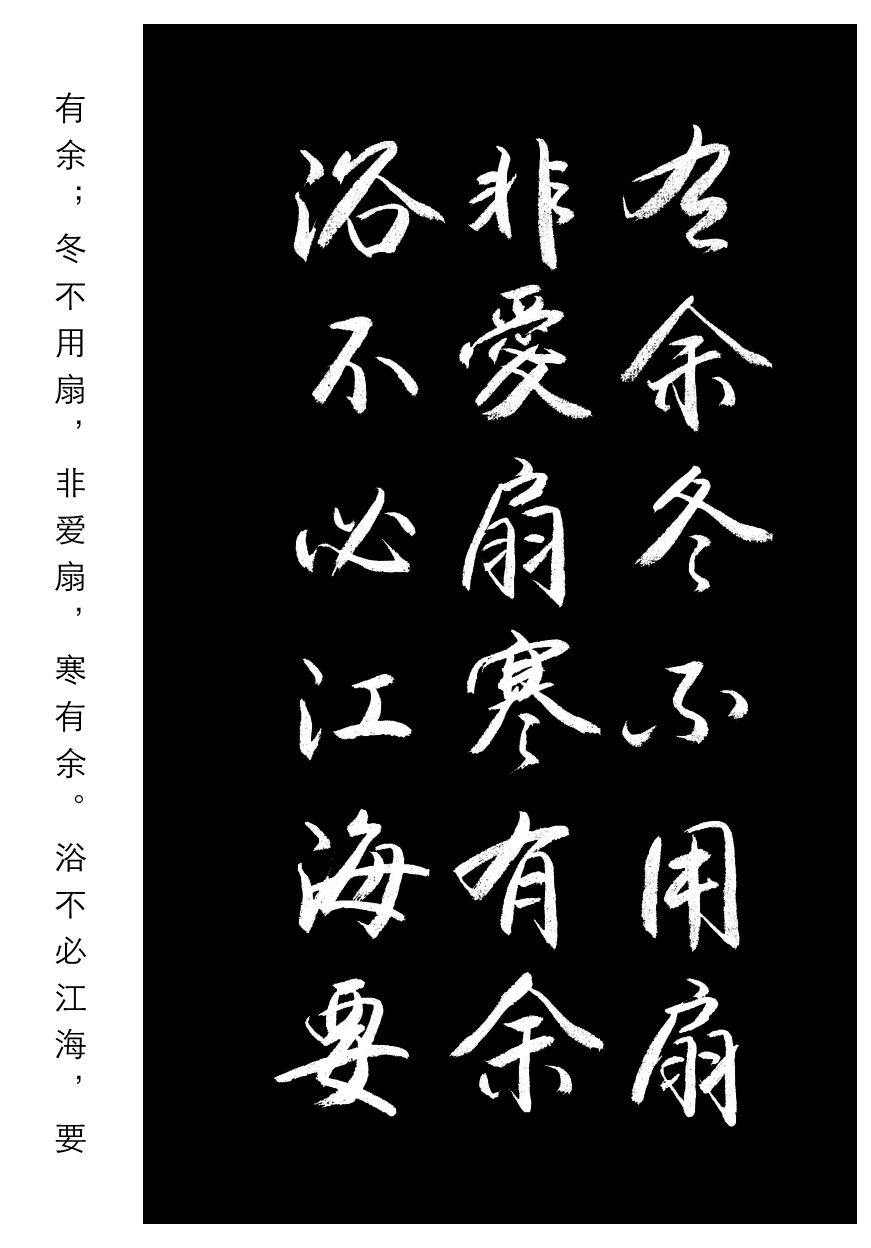 有余；冬不用扇，非爱扇，寒有余。浴不必江海，要
有余冬不用扇
非愛扇寒有余
浴不必江海要